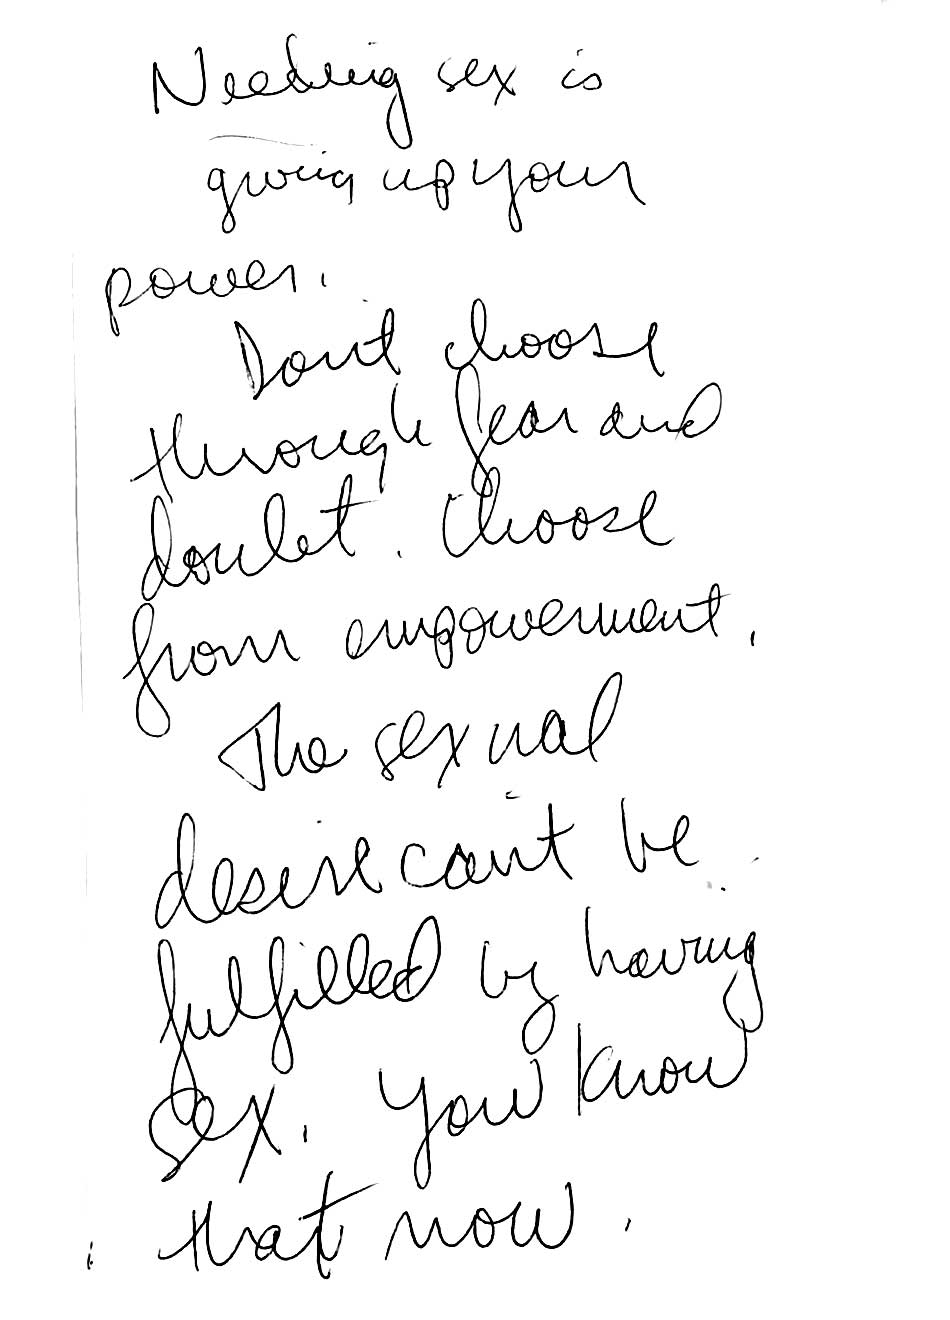 Needing sex is
giving up your
power.
Don't choose
through fear and
doubt. Choose
from empowerment.
The sexual
desire can't be
fulfilled by having
sex. You know
that now.